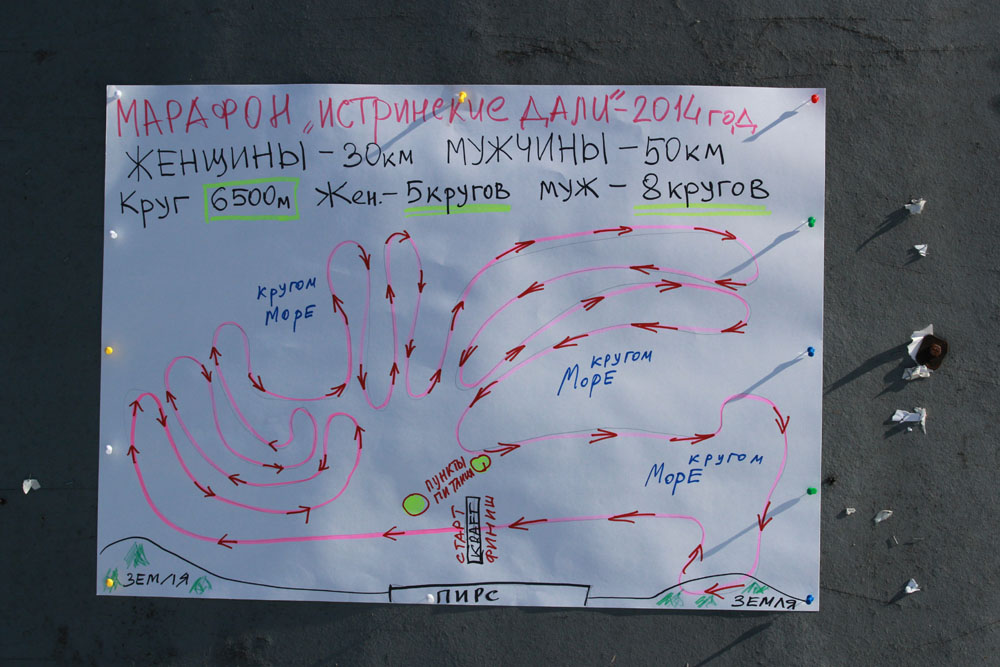 МАРАФОН „ИСТРИНСКИЕ ДАЛИ"-2014 год
ЖЕНЩИНЫ – 30 км МУЖЧИНЫ – 50 км
Круг 6500м Жен.– 5 кругов муж – 8 кругов
кругом
МорЕ
кругом
МорЕ
кругом
МорЕ
ПУНКТЫ
ПИТАНИЯ
СТАРТ
KRAFT
ФИНИШ
ЗЕМЛЯ
ПИРС
ЗЕМЛЯ